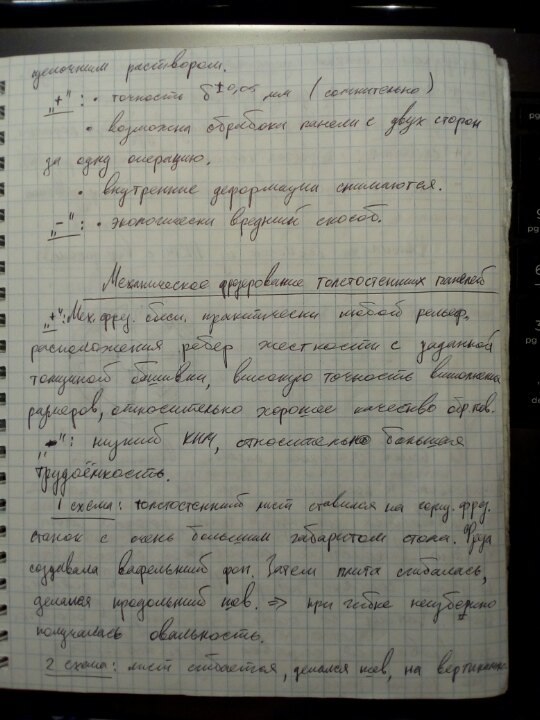 щелочным раствором.
"+": • точность δ±0,05 мм (сомнительно)
• возможна обработка панели с двух сторон
за одну операцию.
• внутренние деформации снимаются.
"-": • экологически вредный способ.
Механическое фрезерование толстостенных панелей
"+": Мех. фрез. обесп. практически любой рельеф,
расположения рёбер жесткости с заданной
толщиной обшивки, высокую точность выполнения
размеров, относительно хорошее качество обр. пов.
"-": низкий КИМ, относительно большая
трудоёмкость.
1 схема: толстостенный лист ставился на гориз. фрез.
станок с очень большим габаритом стола. Фреза
создавала вафельный фон. Затем плита сгибалась,
делался продольный шов. => при гибке неизбежно
получалась овальность.
2 схема: лист сгибается, делался шов, на вертикальн
pg
pg